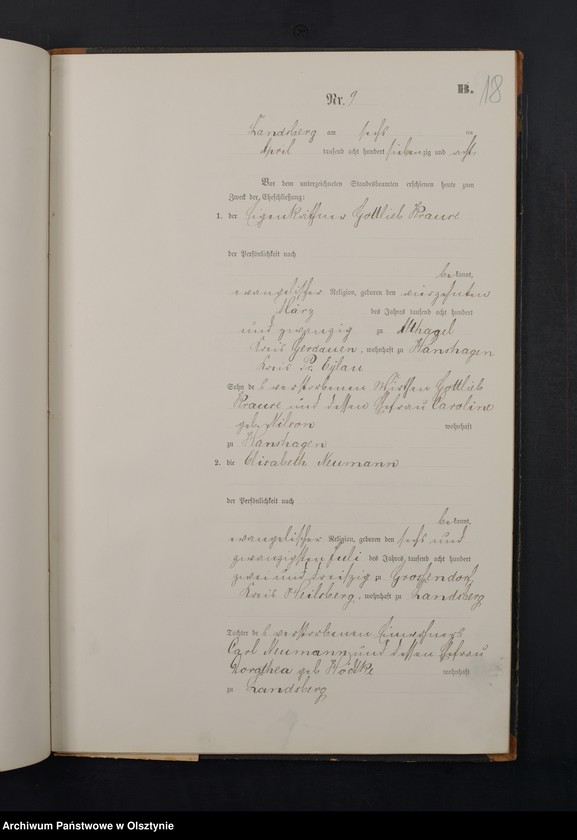 B. 18
Nr. 9
Landsberg am sechs ten
April tausend acht hundert siebenzig und acht
Vor dem unterzeichneten Standesbeamten erschienen heute zum
Zweck der Eheschließung:
1. der Eigenkäthner Gottlieb Krause
der Persönlichkeit nach
bekannt,
evangelischer Religion, geboren den vierzehnten
März des Jahres tausend acht hundert
und zwanzig zu
Kreis Gerdauen, wohnhaft zu Hanshagen
Kreis Pr. Eylau
Sohn des verstorbenen Gottlieb
Krause und dessen Ehefrau Caroline
geb. wohnhaft
zu Hanshagen
2. die Elisabeth Neumann
der Persönlichkeit nach
bekannt,
evangelischer Religion, geboren den sechs und
zwanzigsten Juli des Jahres tausend acht hundert
zwei und dreißig zu Großendorf
Kreis Heilsberg, wohnhaft zu Landsberg
Tochter des verstorbenen Einwohners
Carl Neumann und dessen Ehefrau
Dorothea geb. wohnhaft
zu Landsberg
Archiwum Państwowe w Olsztynie